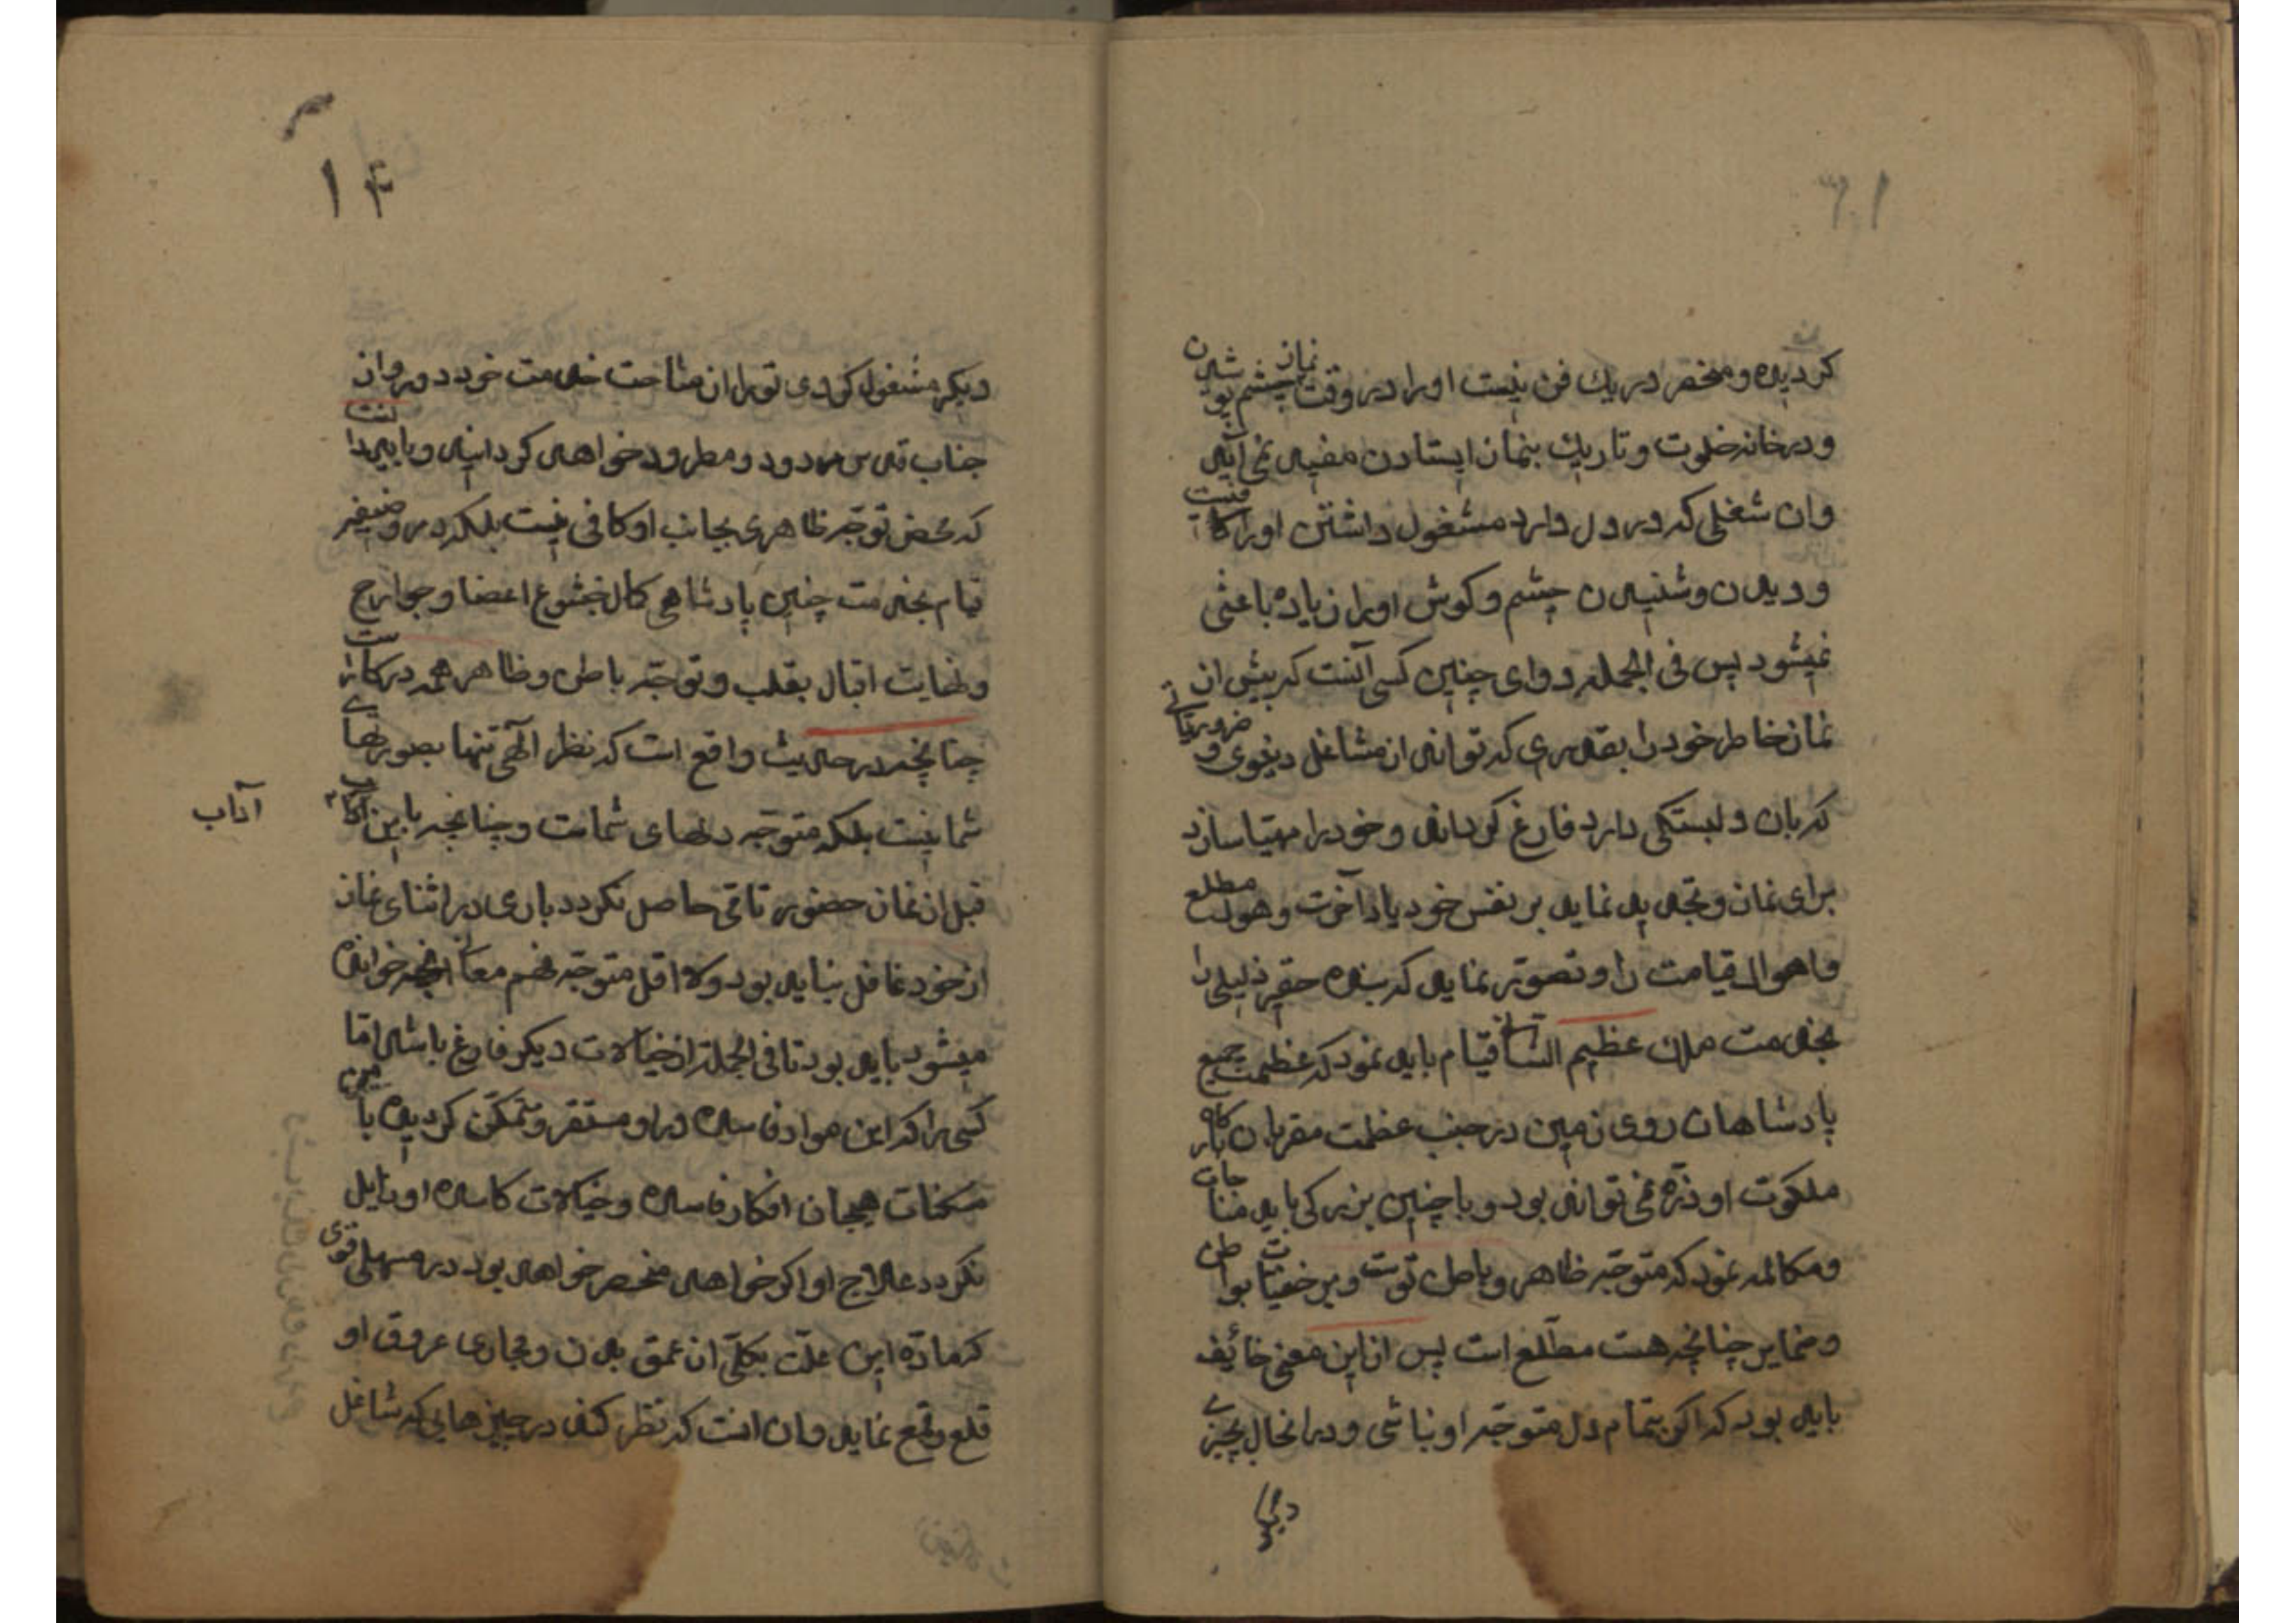 کردیده و منحصر در یك فن نیست او را در وقت نماز چشم پوشیدن
و در خانه خلوت و تاریك بنماز ایستادن مفید نمی آید
و ان شغلی که در دل دارد مشغول داشتن او را کافیست
و دیدن و شنیدن چشم و کوش او را زیاده باعثی
نمیشود پس فی الجمله دوای چنین کسی آنست که پیش از
نماز خاطر خود را بقدری که تواند از مشاغل دنیوی و ضروریاتی
که بان دلبستکی دارد فارغ کرداند و خود را مهیا سازد
برای نماز و تجدید نماید بر نفس خود یاد آخرت و هول مطلع
و اهوال قیامت را و تصویر نماید که بنده حقیر ذلیلی را
بخدمت ملك عظیم الشانی قیام باید نمود که عظمت جمیع
پادشاهان روی زمین در جنب عظمت مقربان بارکاه
ملکوت او ذره نمی تواند بود و با چنین بزرکی باید مناجات
و مکالمه نمود که متوجه ظاهر و باطن توست و بر خفیات بواطن
و ضمایر چنانچه هست مطلع است پس از این معنی خائف
باید بود که اکر بتمام دل متوجه او نباشی و در انحال بچیزی
دیکر
۱۴
دیکر مشغول کردی تو را از مثاحت خدمت خود دور و از
جناب قدس مردود و مطرود خواهد کردانید و باید دانست
که محض توجه ظاهری بجانب او کافی نیست بلکه در وضیفه
قیام بخدمت چنین پادشاهی کمال خشوع اعضا و جوارح
و نهایت اقبال بقلب و توجه باطن و ظاهر همه در کار است
چنانچه در حدیث واقع است که نظر الهی تنها بصورتهای
شما نیست بلکه متوجه دلهای شماست و چنانچه باین آداب
آداب
قبل از نماز حضور تامی حاصل نکردد باری در اثنای نماز
از خود غافل نباید بود و لا اقل متوجه فهم معانی انچه خوانده
میشود باید بود تا فی الجمله از خیالات دیکر فارغ باشد اما
کسی را که این مواد فاسده در او مستقر و متمکن کردیده با
مسکنات هیجان افکار فاسده و خیالات کاسده او زایل
نکردد علاج او اکر خواهد منحصر خواهد بود در مسهلی قوی
که ماده این علت بکلی از عمق بدن و مجاری عروق او
قلع و قمع نماید و ان انست که نظر کند در چیزهایی که شاغل